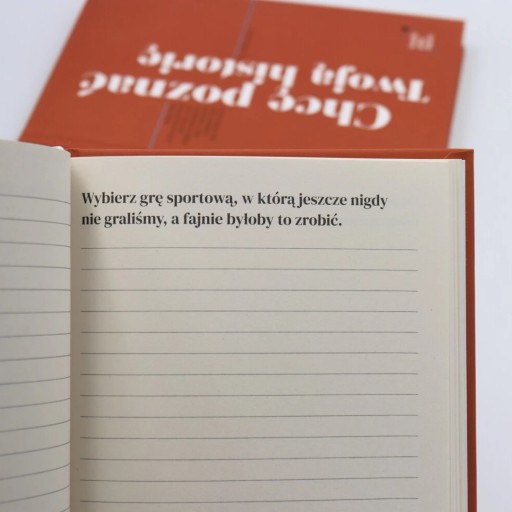 Chcę poznać
Twoją historię
Wybierz grę sportową, w którą jeszcze nigdy
nie graliśmy, a fajnie byłoby to zrobić.